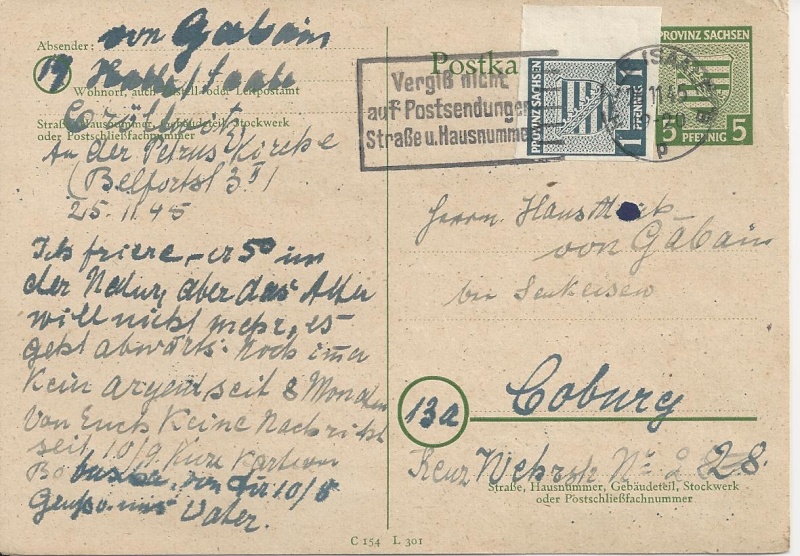 Absender: von Gabain
19 Halle/Saale
Wohnort, auch Zustell- oder Leitpostamt
Straße, Hausnummer, Gebäudeteil, Stockwerk
oder Postschließfachnummer
An der Petrus Kirche
(Belfortst 3
25.11.45
Ich friere
der Natur, aber das Alter
will nicht mehr, es
geht abwärts. Noch immer
Kein seit 8 Monaten
Von Euch Keine Nachricht
seit 10/9. Kurze Karte von
von Dir 10/8
Vater.
Postka
Vergiß nicht
auf Postsendungen
Straße u. Hausnummer
PROVINZ SACHSEN
1 PFENNIG
PROVINZ SACHSEN
5 PFENNIG 5
Herrn Hans
von Gabain
bei
13a Coburg
Wehrstr No 28.
Straße, Hausnummer, Gebäudeteil, Stockwerk
oder Postschließfachnummer
C 154 L 301